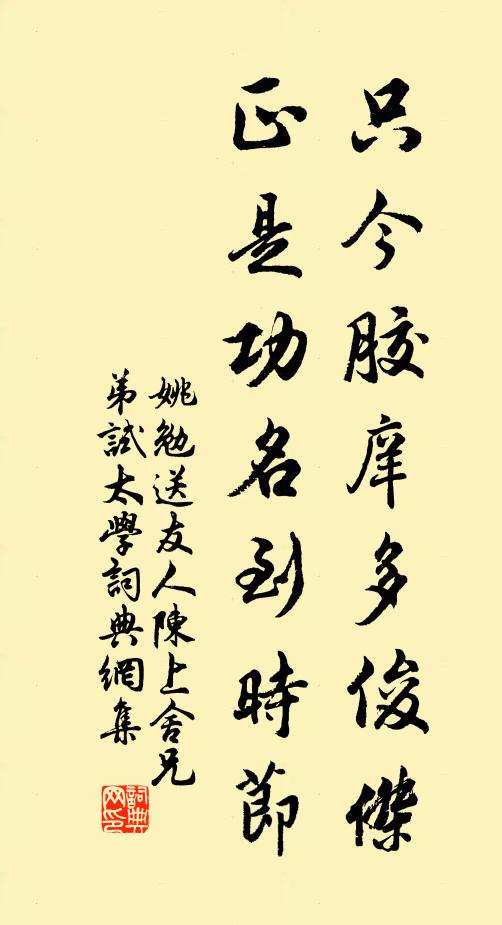 只今胶庠多俊傑
正是功名到時節
姚勉送友人陳上舍兄
弟試太學詞典網集
詞典
网印